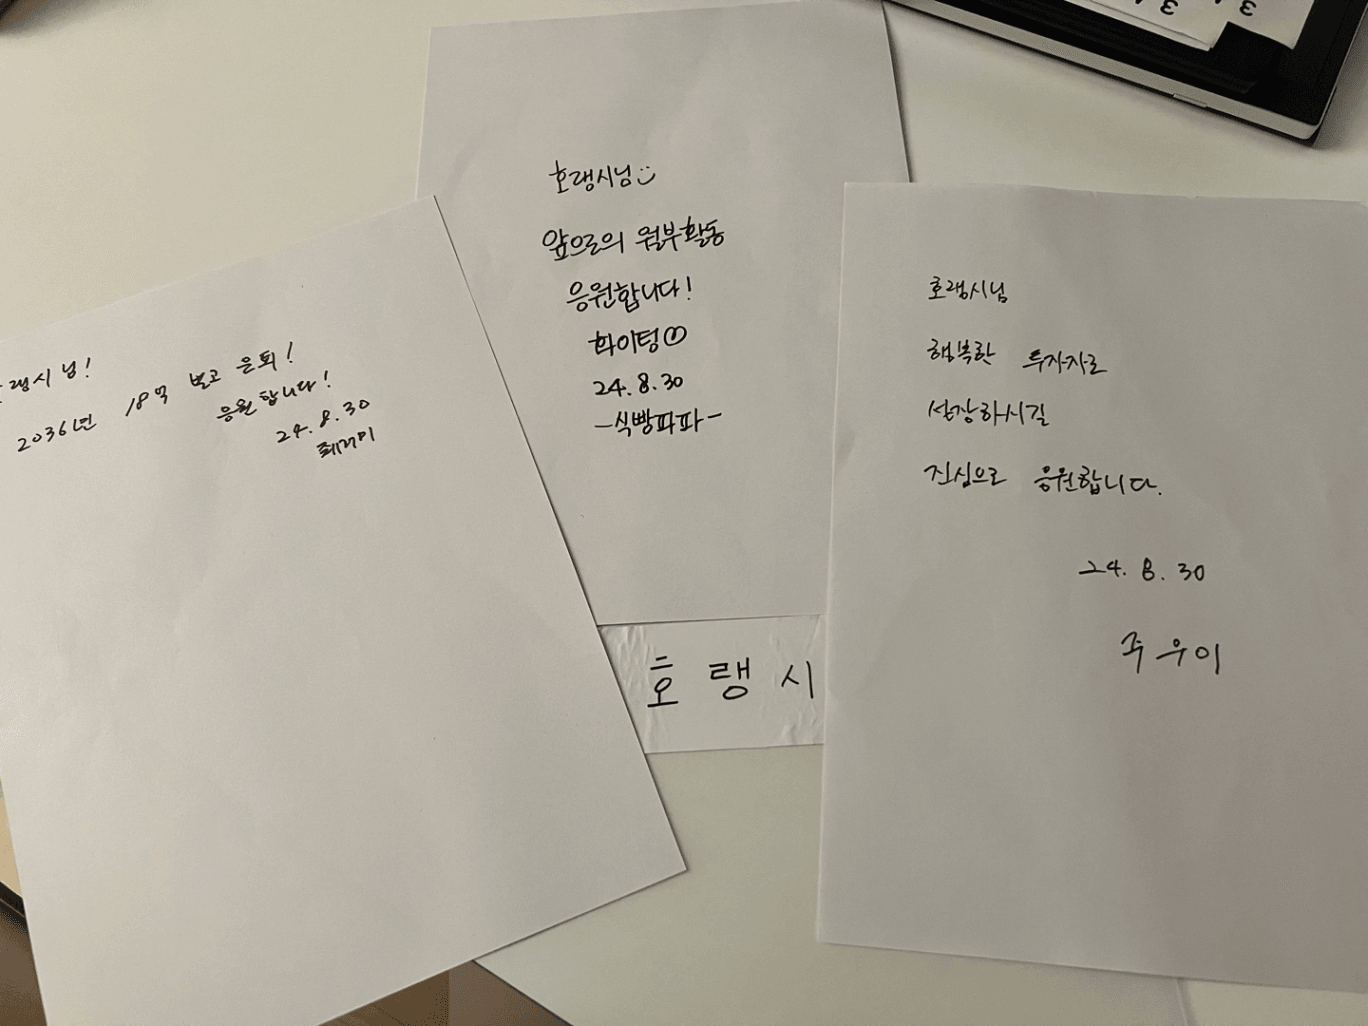 랭시님!
2036년 18억 벌고 은퇴!
응원합니다!
24.8.30
호랭시님
앞으로의 월부활동
응원합니다!
화이팅
24.8.30
-식빵파파-
호랭시님
행복한 투자자로
성장하시길
진심으로 응원합니다.
24.8.30
주우이
호랭시